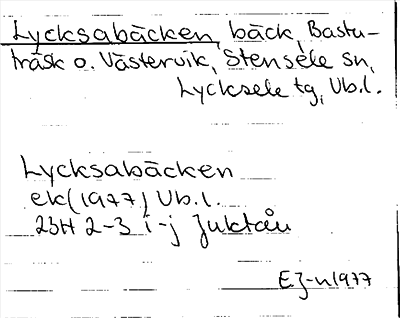 Lycksabäcken, bäck, Bastu-
träsk o. Västervik, Stensele sn,
Lycksele tg, Vb.l.
Lycksabäcken
ek (1977) Vb.l.
23H 2-3 i-j Juktån
EJ-n 1977